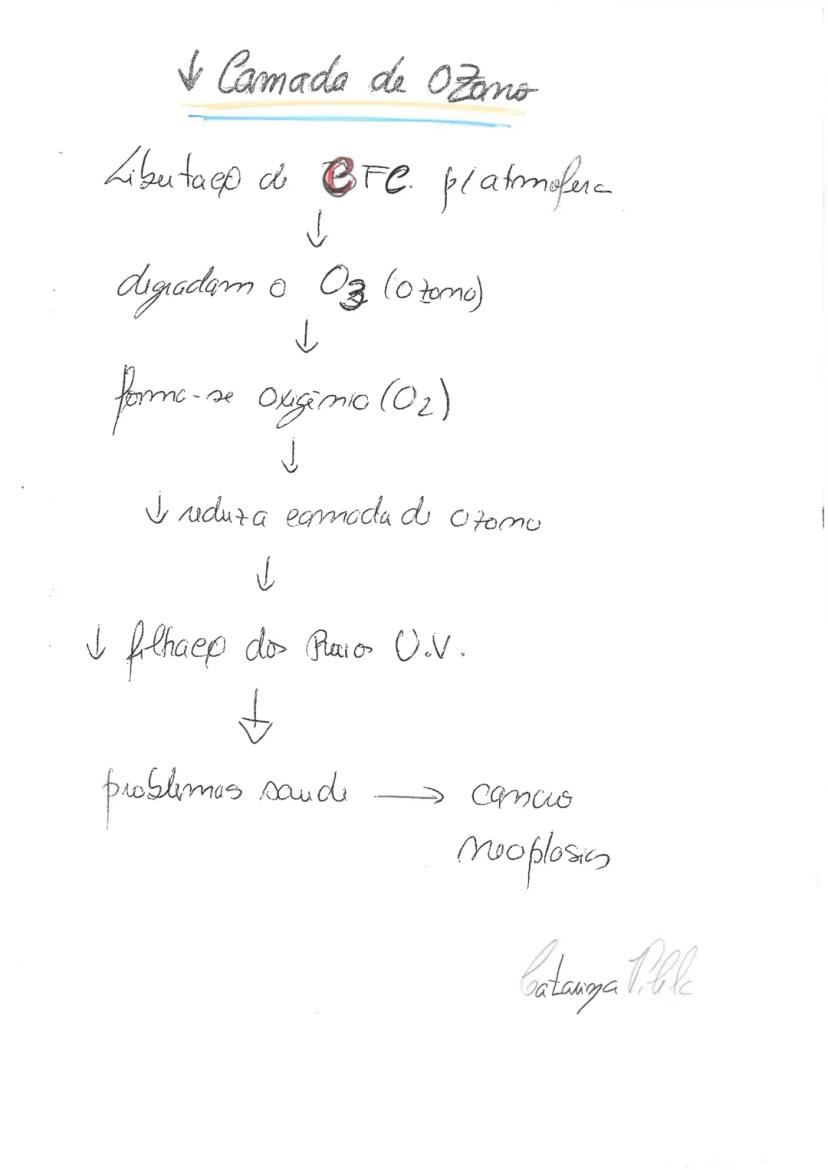 ↓ Camada de Ozono
Libertação de CFC. p/ atmosfera
↓
degradam o O3 (ozono)
↓
forma-se oxigénio (O2)
↓
↓ reduz a camada de ozono
↓
↓ filtração dos Raios U.V.
↓
problemas saude → cancro
neoplasias
Catarina